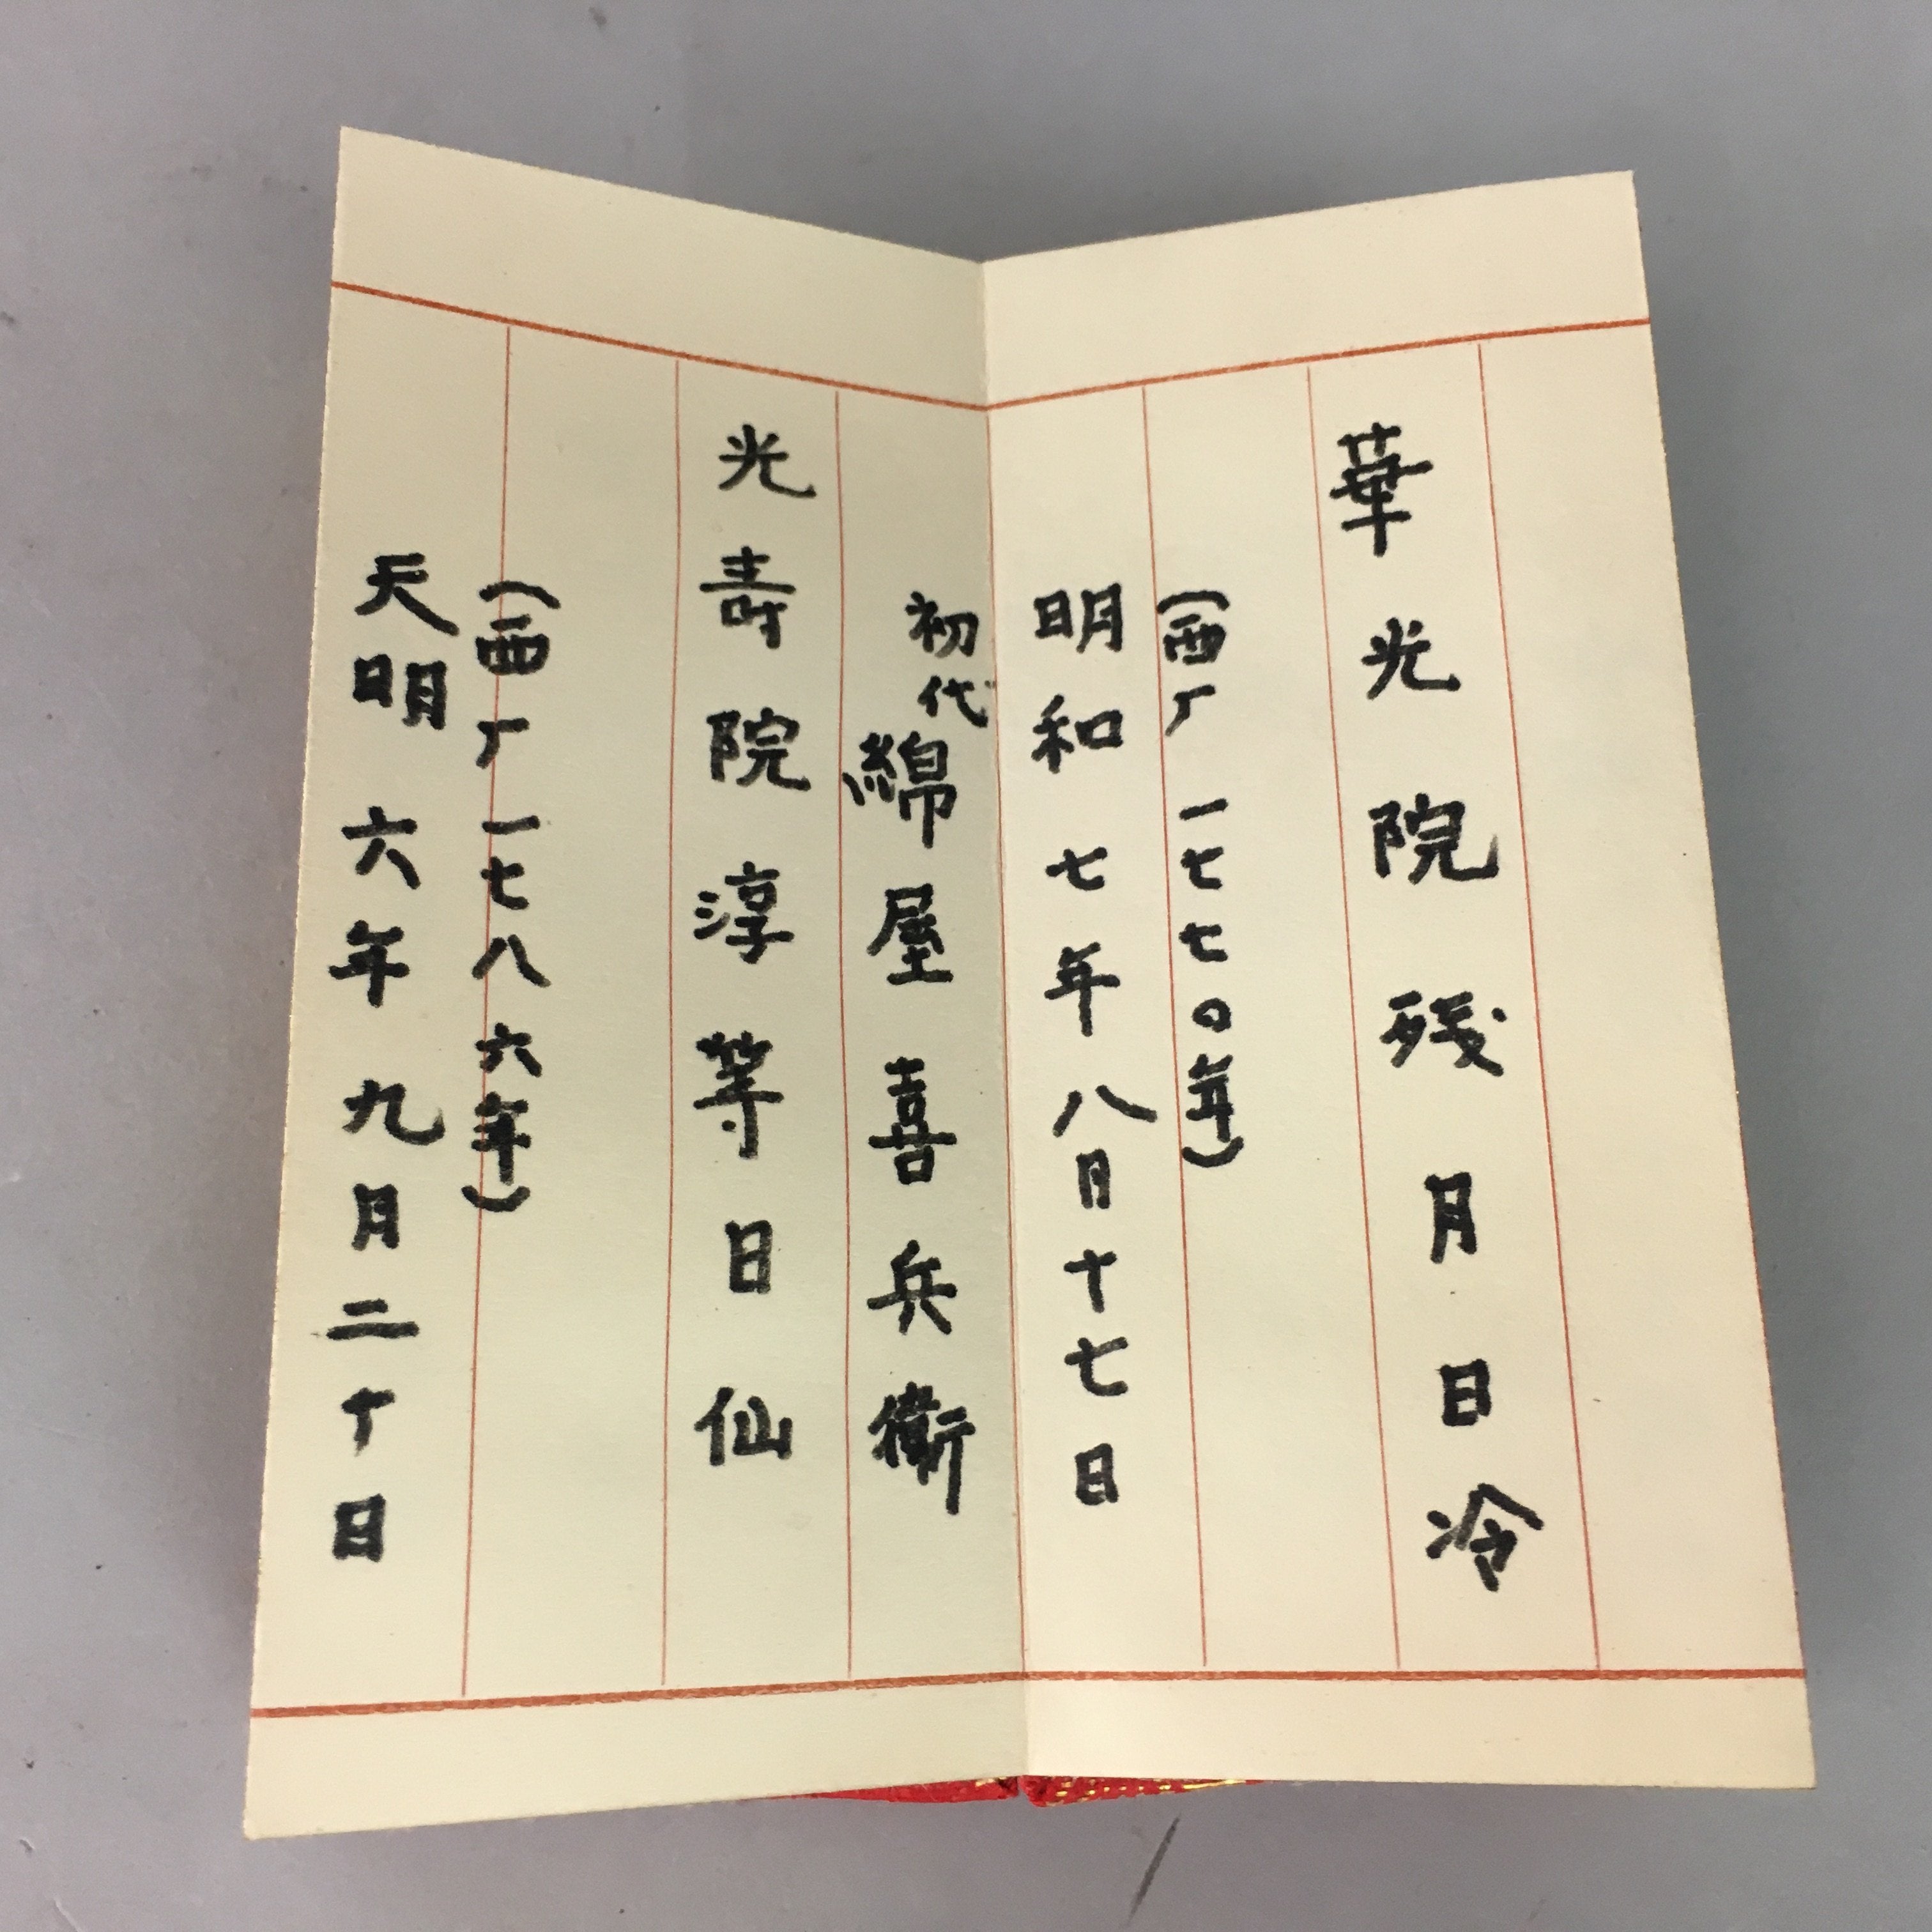 華光院残月日冷
(西厂一七七〇年)
明和七年八月十七日
初代綿屋喜兵衛
光寿院淳等日仙
(西厂一七八六年)
天明六年九月二十日